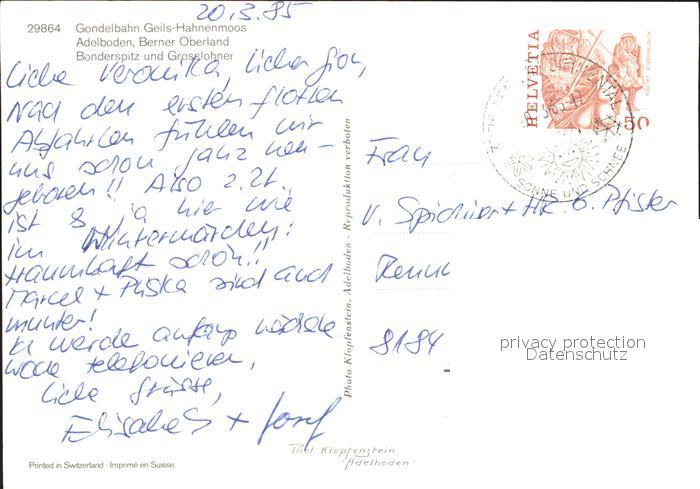 20.3.85
29864 Gondelbahn Geils-Hahnenmoos
Adelboden, Berner Oberland
Bonderspitz und Grosslohner
Liebe Veronika, lieber Gion,
Nach den ersten flotten
Abfahrten fühlen wir
uns schon ganz neu-
geboren!! Also z.Zt.
ist es ja hier wie
im Wintermärchen:
traumhaft schön!!
Marcel + sind auch
munter!
Ich werde anfangs nächste
Woche telefonieren,
Liebe Grüsse,
Elisabeth + Josef
Printed in Switzerland · Imprimé en Suisse
Photo Klopfenstein, Adelboden - Reproduktion verboten
Phot. Klopfenstein
"Adelboden"
HELVETIA
50
SONNE UND SCHNEE
Frau
V. + Hr. G. Pfister
8184
privacy protection
Datenschutz